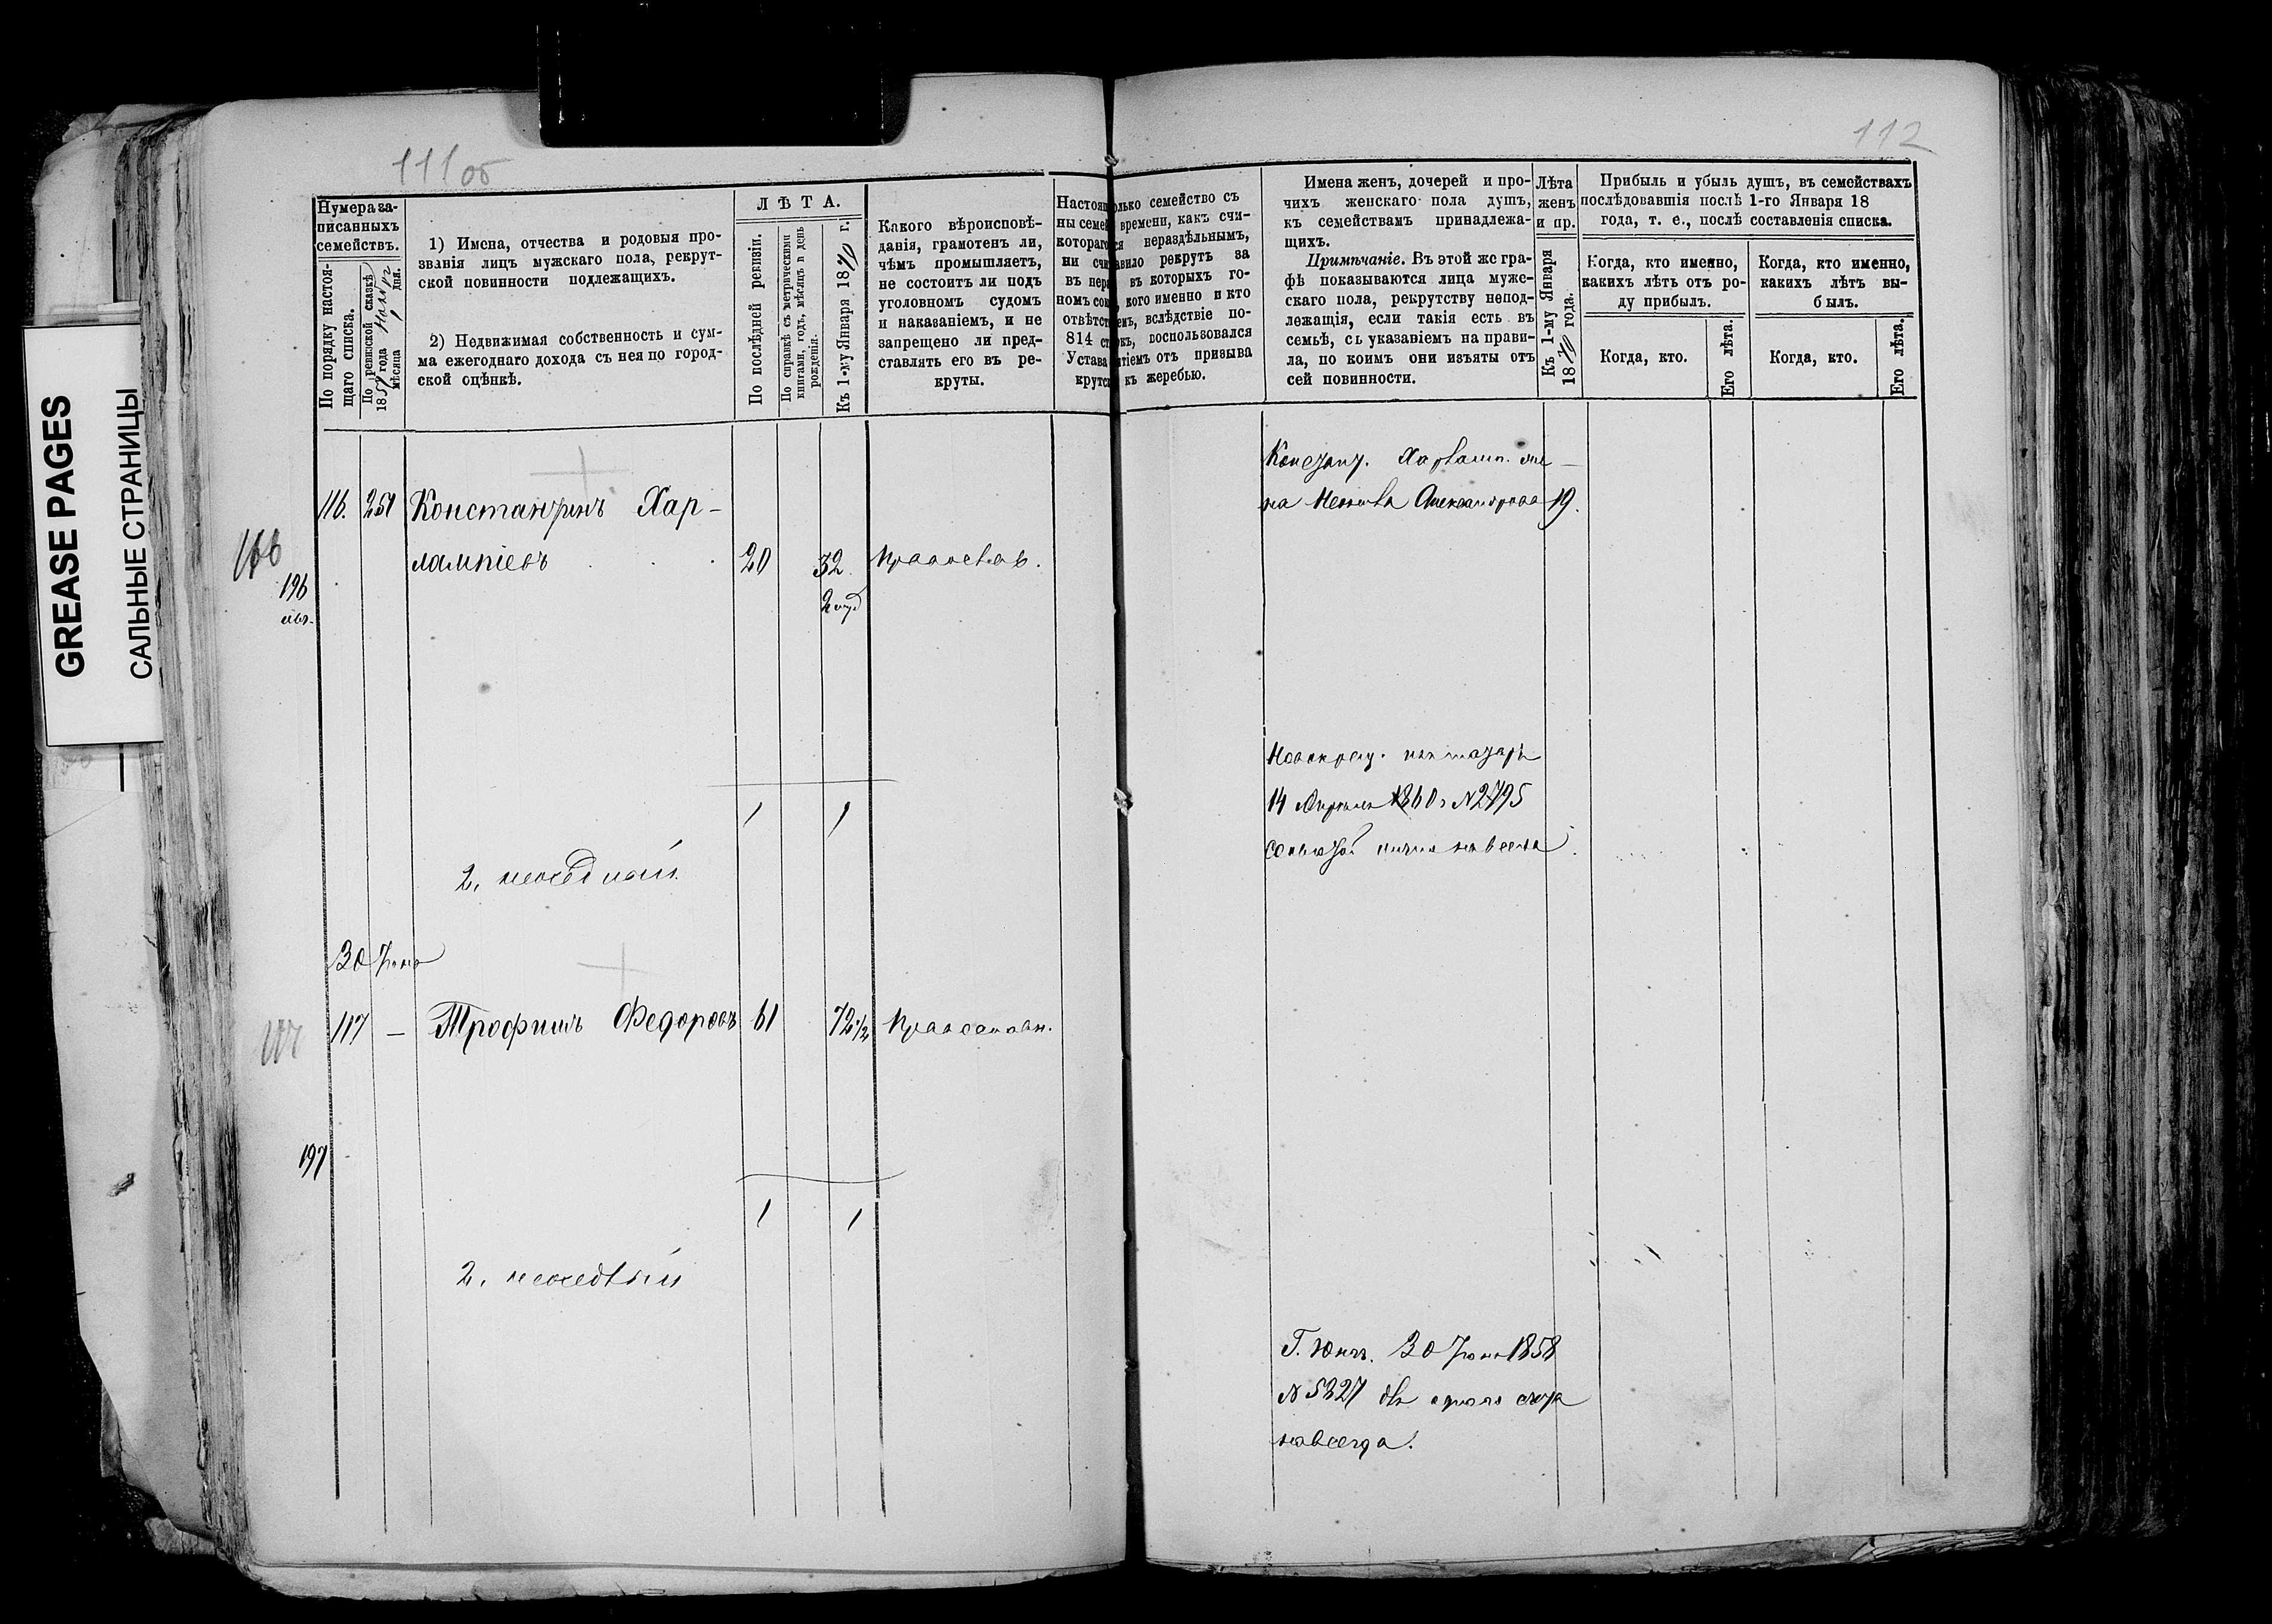 111об
112
GREASE PAGES
САЛЬНЫЕ СТРАНИЦЫ
Нумера за-
писанныхъ
семействъ.
По порядку настоя-
щаго списка.
По ревизской сказкѣ
1857 года
мѣсяца дня.
1) Имена, отчества и родовыя про-
званія лицъ мужскаго пола, рекрут-
ской повинности подлежащихъ.
2) Недвижимая собственность и сум-
ма ежегоднаго дохода съ нея по город-
ской оцѣнкѣ.
ЛѢТА.
По послѣдней ревизіи.
По справкѣ съ метрическими
книгами, годъ, мѣсяцъ и день
рожденія.
Къ 1-му Января 1870 г.
Какого вѣроисповѣ-
данія, грамотенъ ли,
чѣмъ промышляетъ,
не состоитъ ли подъ
уголовномъ судомъ
и наказаніемъ, и не
запрещено ли пред-
ставлять его въ ре-
круты.
Настоящ
ны семей
котораго
ни счи
въ нер
номъ со
отвѣтст
814 ст
Устава
крутск
олько семейство съ
времени, какъ счи-
ся нераздѣльнымъ,
авило рекрутъ за
въ которыхъ го-
кого именно и кто
емъ, вслѣдствіе по-
окъ, воспользовался
тіемъ отъ призыва
къ жеребью.
Имена женъ, дочерей и про-
чихъ женскаго пола душъ,
къ семействамъ принадлежа-
щихъ.
Примѣчаніе. Въ этой же гра-
фѣ показываются лица муже-
скаго пола, рекрутству непод-
лежащія, если такія есть въ
семьѣ, съ указаніемъ на прави-
ла, по коимъ они изъяты отъ
сей повинности.
Лѣта
женъ
и пр.
Къ 1-му Января
1870 года.
Прибыль и убыль душъ, въ семействахъ
послѣдовавшія послѣ 1-го Января 18
года, т. е., послѣ составленія списка.
Когда, кто именно,
какихъ лѣтъ отъ ро-
ду прибылъ.
Когда, кто именно,
какихъ лѣтъ вы-
былъ.
Когда, кто.
Его лѣта.
Когда, кто.
Его лѣта.
116. 251 Константинъ Хар-
лампіевъ 20 32 Православ.
196
Констант. Харламп. же-
на Александрова 19.
1 1
14 Апрѣля 1860 г N 2795
2. неосѣдлый.
30 Іюня
117 — Трофимъ Федоровъ 61 72 1/2 Православн.
197
1 1
2. неосѣдлый
30 Іюня 1858
N 5327
навсегда.